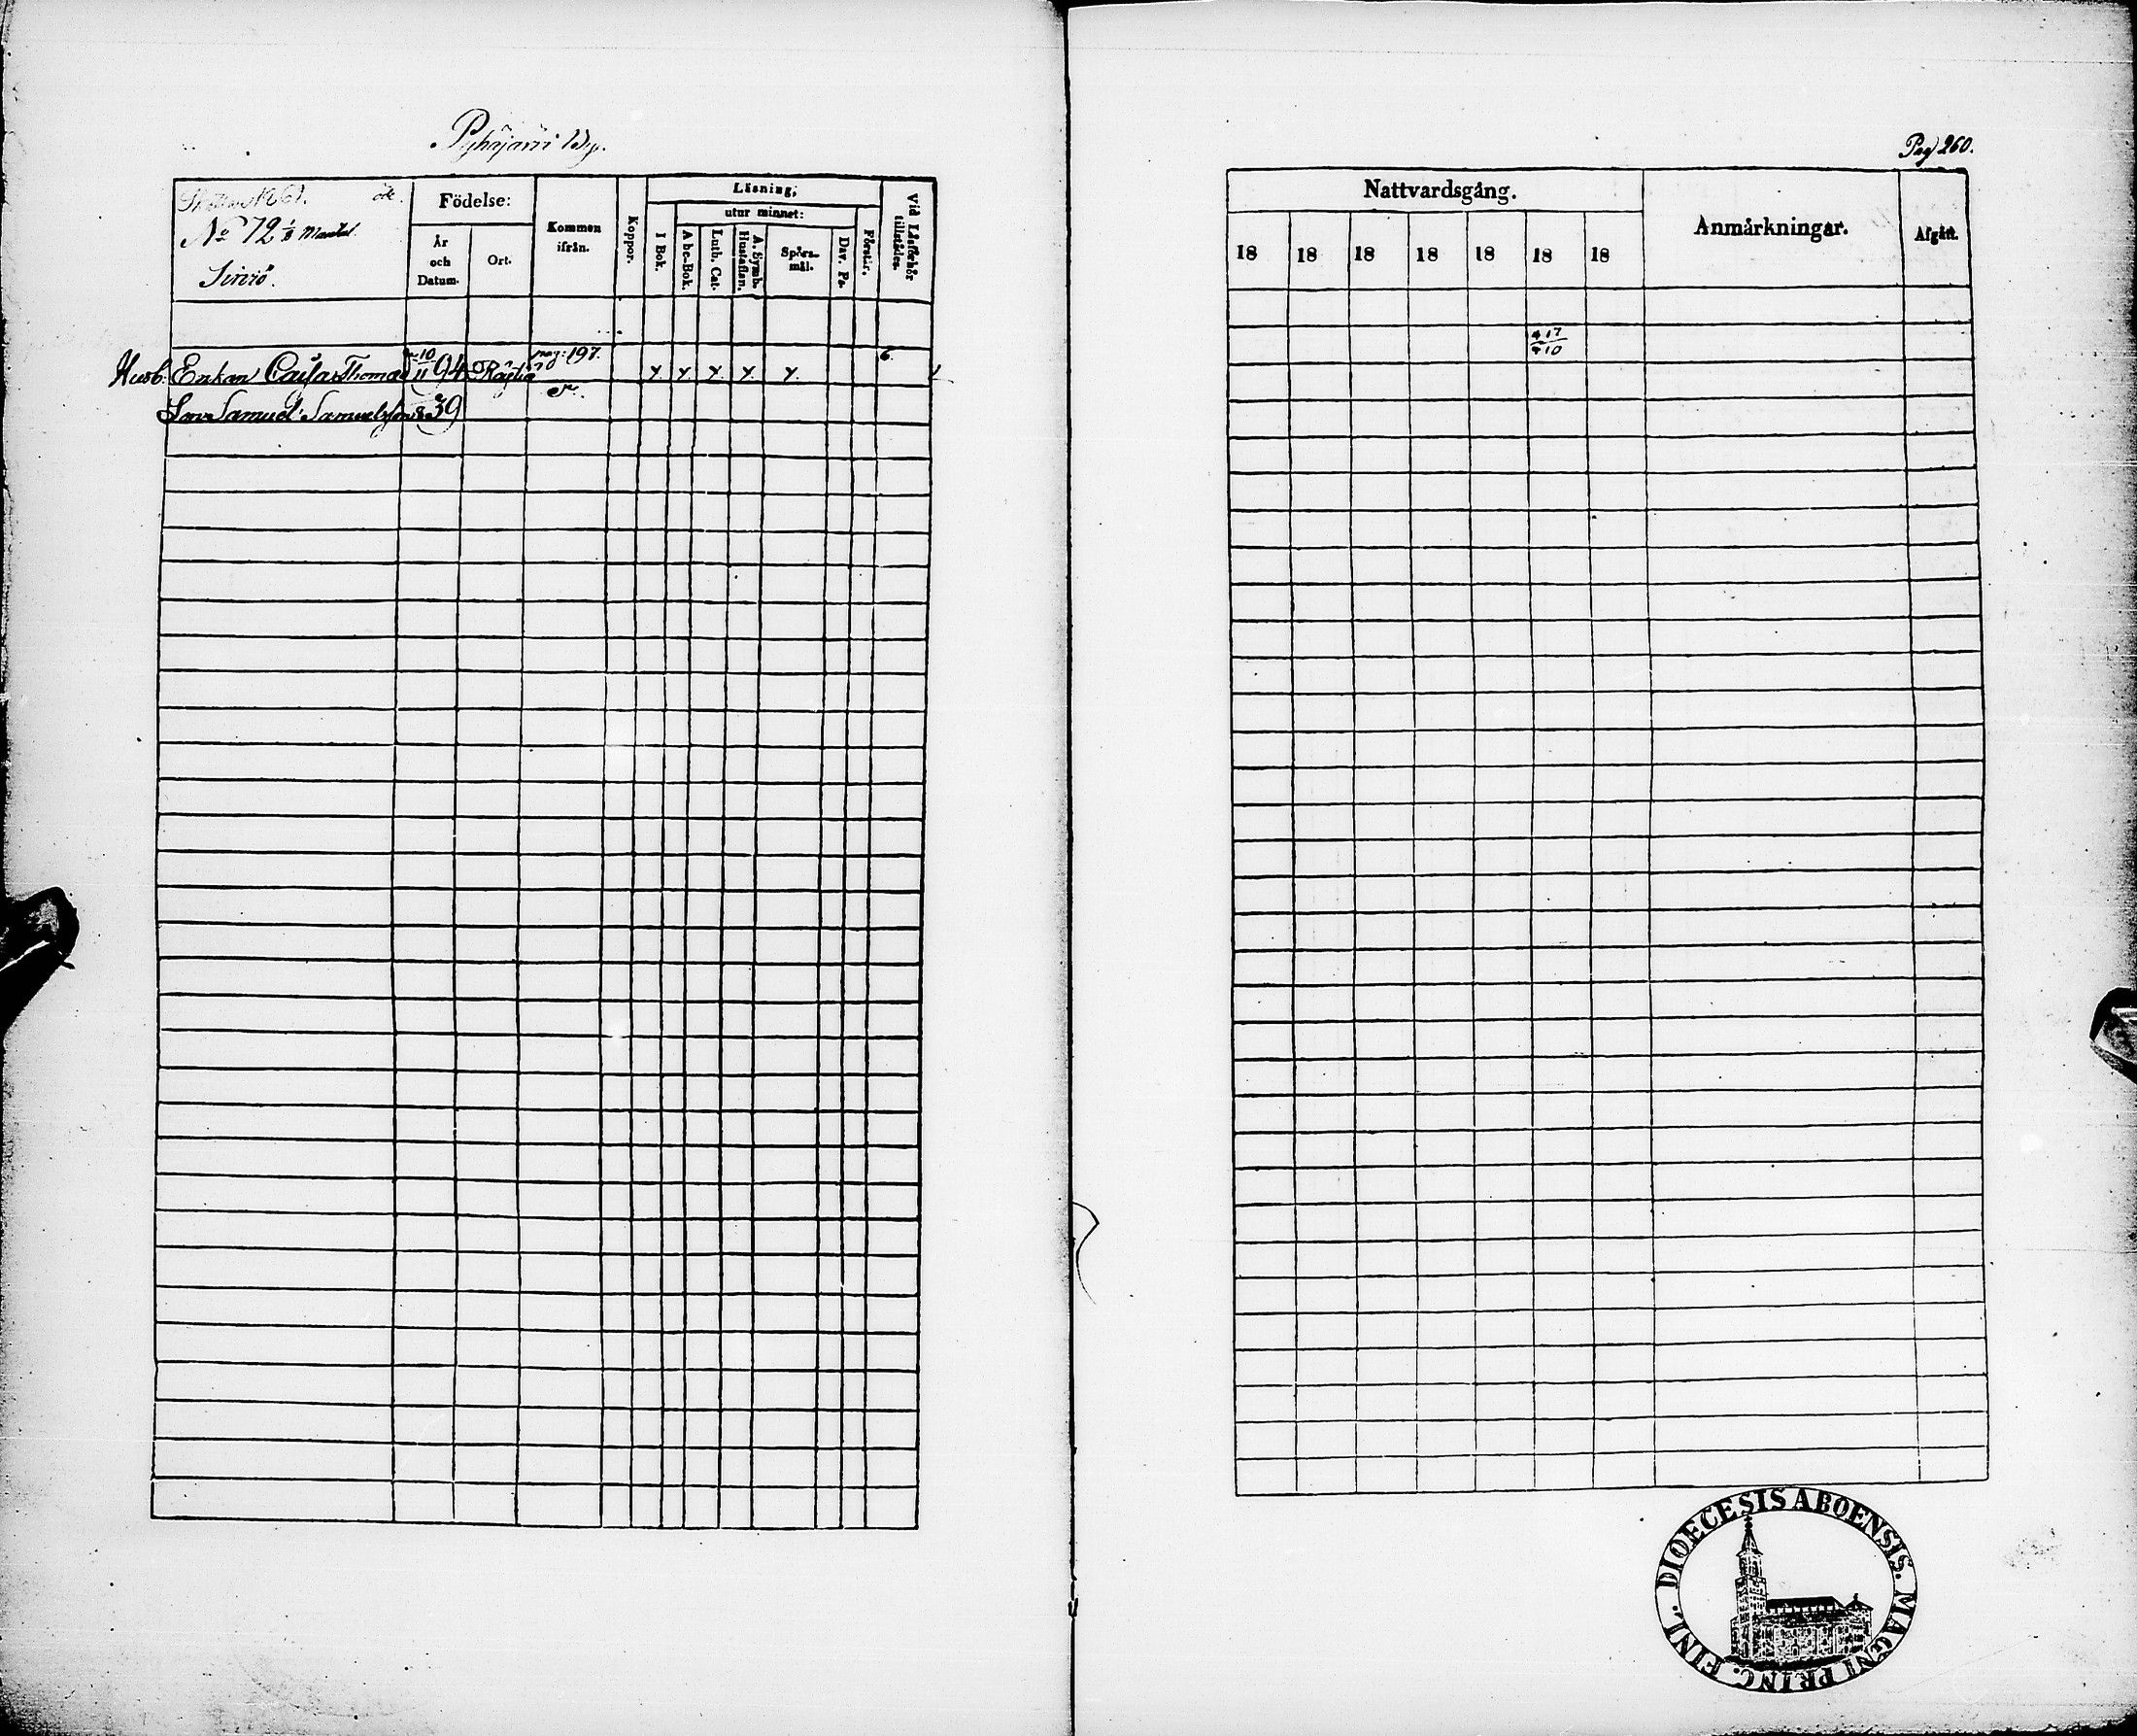 Pyhäjärvi By.
Skatte No 61. öde.
No 72 1/8 Mantal.
Födelse:
År och Datum.
Ort.
Kommen ifrån.
Koppor.
Läsning;
I Bok.
utur minnet:
Abc-Bok.
Luth. Cat.
A. Symb. Hustaflan.
Spörs-mål.
Dav. Ps.
Förstår.
Vid Läsförhör tillstädes.
pag: 197. 6.
Husb: Enkan Cajsa Thomad: 10/11 94 x. x. x. x. x.
Son Samuel Samuelsson 39
Pag 260.
Nattvardsgång.
18 18 18 18 18 18 18
Anmärkningar.
Afgått.
DIOECESIS ABOENSIS. MAGNI PRINC. FINL.